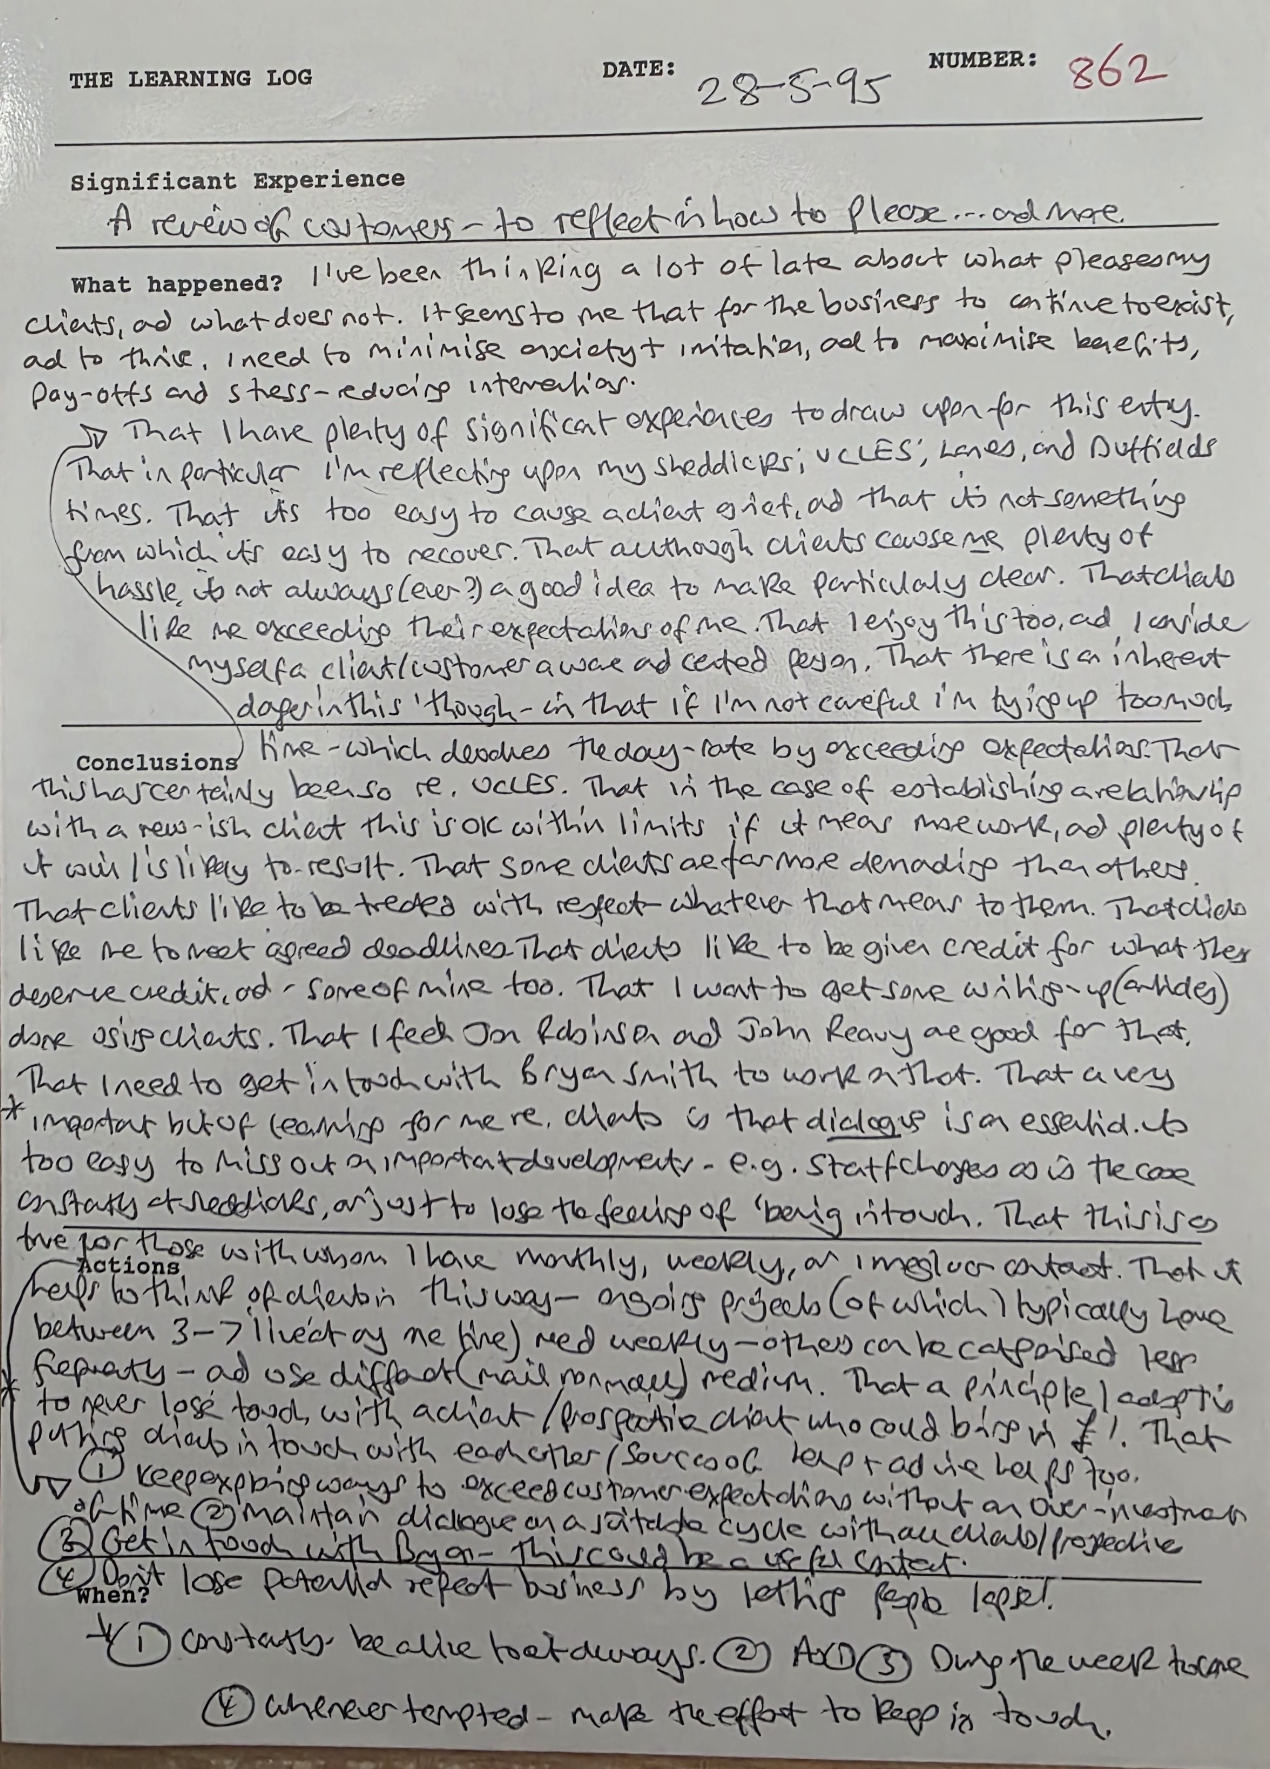 THE LEARNING LOG DATE: 28-5-95 NUMBER: 862
Significant Experience
A review of customers - to reflect is how to please... and more.
What happened? I've been thinking a lot of late about what pleases my
clients, and what does not. It seems to me that for the business to continue to exist,
and to thrive, I need to minimise anxiety + irritation, and to maximise benefits,
pay-offs and stress-reducing interventions.
That I have plenty of significant experiences to draw upon for this entry.
That in particular I'm reflecting upon my Sheddicks; UCLES', Lanes, and Duffields
times. That it's too easy to cause a client grief, and that it's not something
from which it's easy to recover. That although clients cause me plenty of
hassle, it's not always (ever?) a good idea to make particularly clear. That clients
like me exceeding their expectations of me. That I enjoy this too, and I consider
myself a client/customer aware and centred person. That there is an inherent
danger in this 'though - in that if I'm not careful I'm tying up too much
Conclusions time - which devalues the day-rate by exceeding expectations. That
this has certainly been so re. UCLES. That in the case of establishing a relationship
with a new-ish client this is OK within limits if it means more work, and plenty of
it will / is likely to result. That some clients are far more demanding than others.
That clients like to be treated with respect - whatever that means to them. That clients
like me to meet agreed deadlines. That clients like to be given credit for what they
deserve credit, and - some of mine too. That I want to get some writing-up (articles)
done using clients. That I feel Jon Robinson and John Reavy are good for that.
That I need to get in touch with Bryan Smith to work on that. That a very
* important bit of learning for me re. clients is that dialogue is an essential. It's
too easy to miss out on important developments - e.g. staff changes as is the case
constantly at Sheddicks, or just to lose the feeling of 'being in touch. That this is so
true for those with whom I have monthly, weekly, or irregular contact. That it
Actions helps to think of clients in this way - ongoing projects (of which I typically have
between 3-7 live at any one time) need weekly - others can be categorised less
* frequently - and use different (mail normally) medium. That a principle I adopt is
to never lose touch with a client/prospective client who could bring in £'! That
putting clients in touch with each other / source of help + advice helps too.
① Keep exploring ways to exceed customer expectations without an over-investment
of time ② Maintain dialogue on a suitable cycle with all clients/prospective
③ Get in touch with Bryan - this could be a useful contact.
④ Don't lose potential repeat business by letting people lapse!
When?
① Constantly - be alive to it always. ② As ① ③ During the week to come
④ Whenever tempted - make the effort to keep in touch.